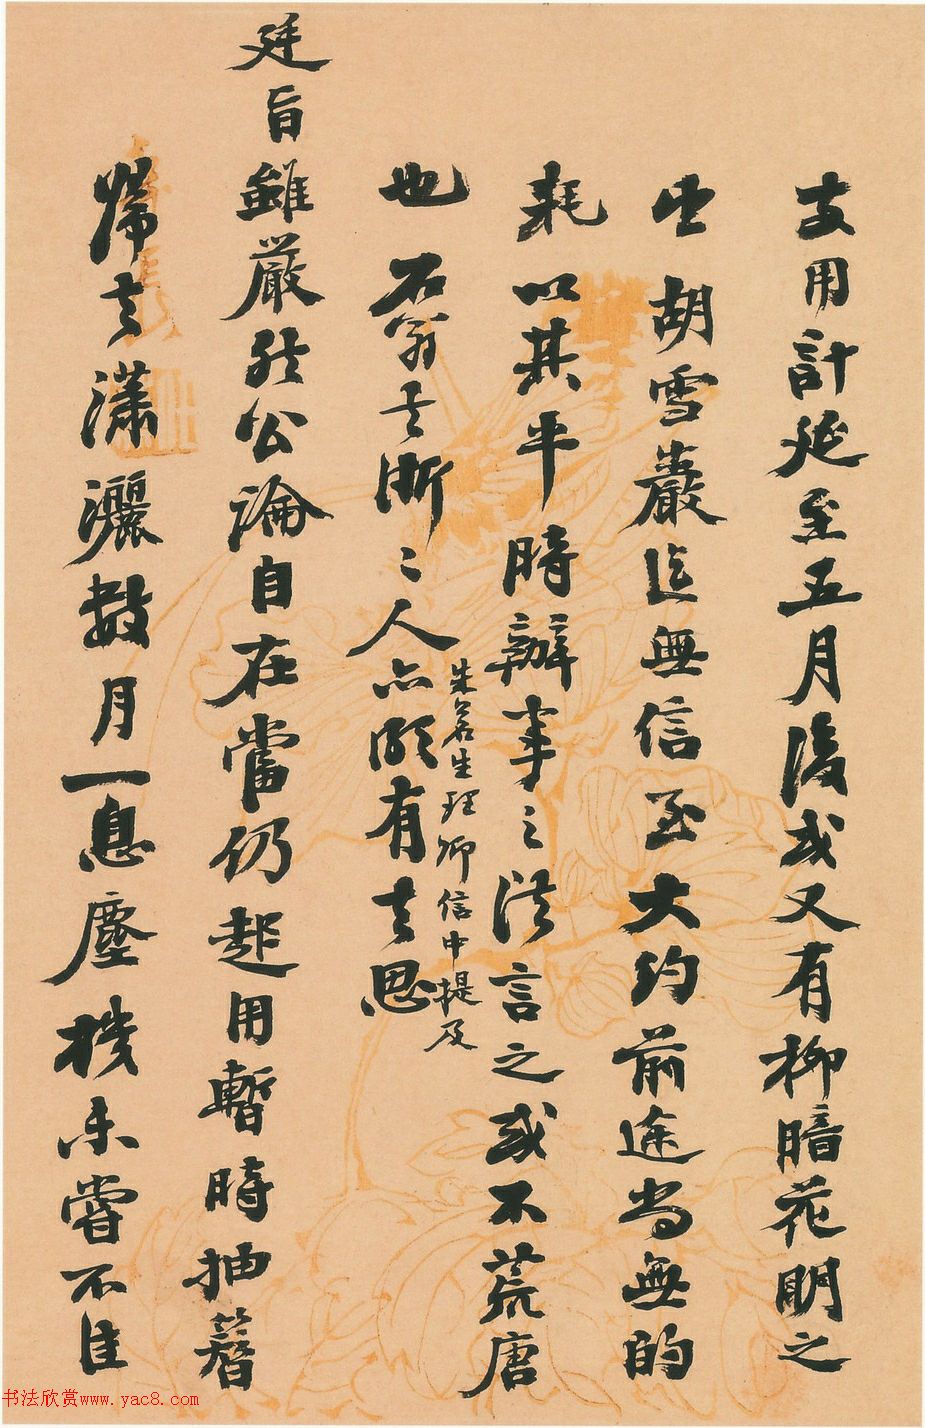 支用計延至五月後或又有柳暗花明之
望胡雪巖迄無信至大約前途尚無的
耗以其平時辦事之法言之或不荒唐
也石翁去浙浙人亦頗有去思
朱茗生理卿信中提及
廷旨雖嚴然公論自在當仍起用暫時抽簪
歸去瀟灑數月一息塵機未嘗不佳
书法欣赏www.yac8.com